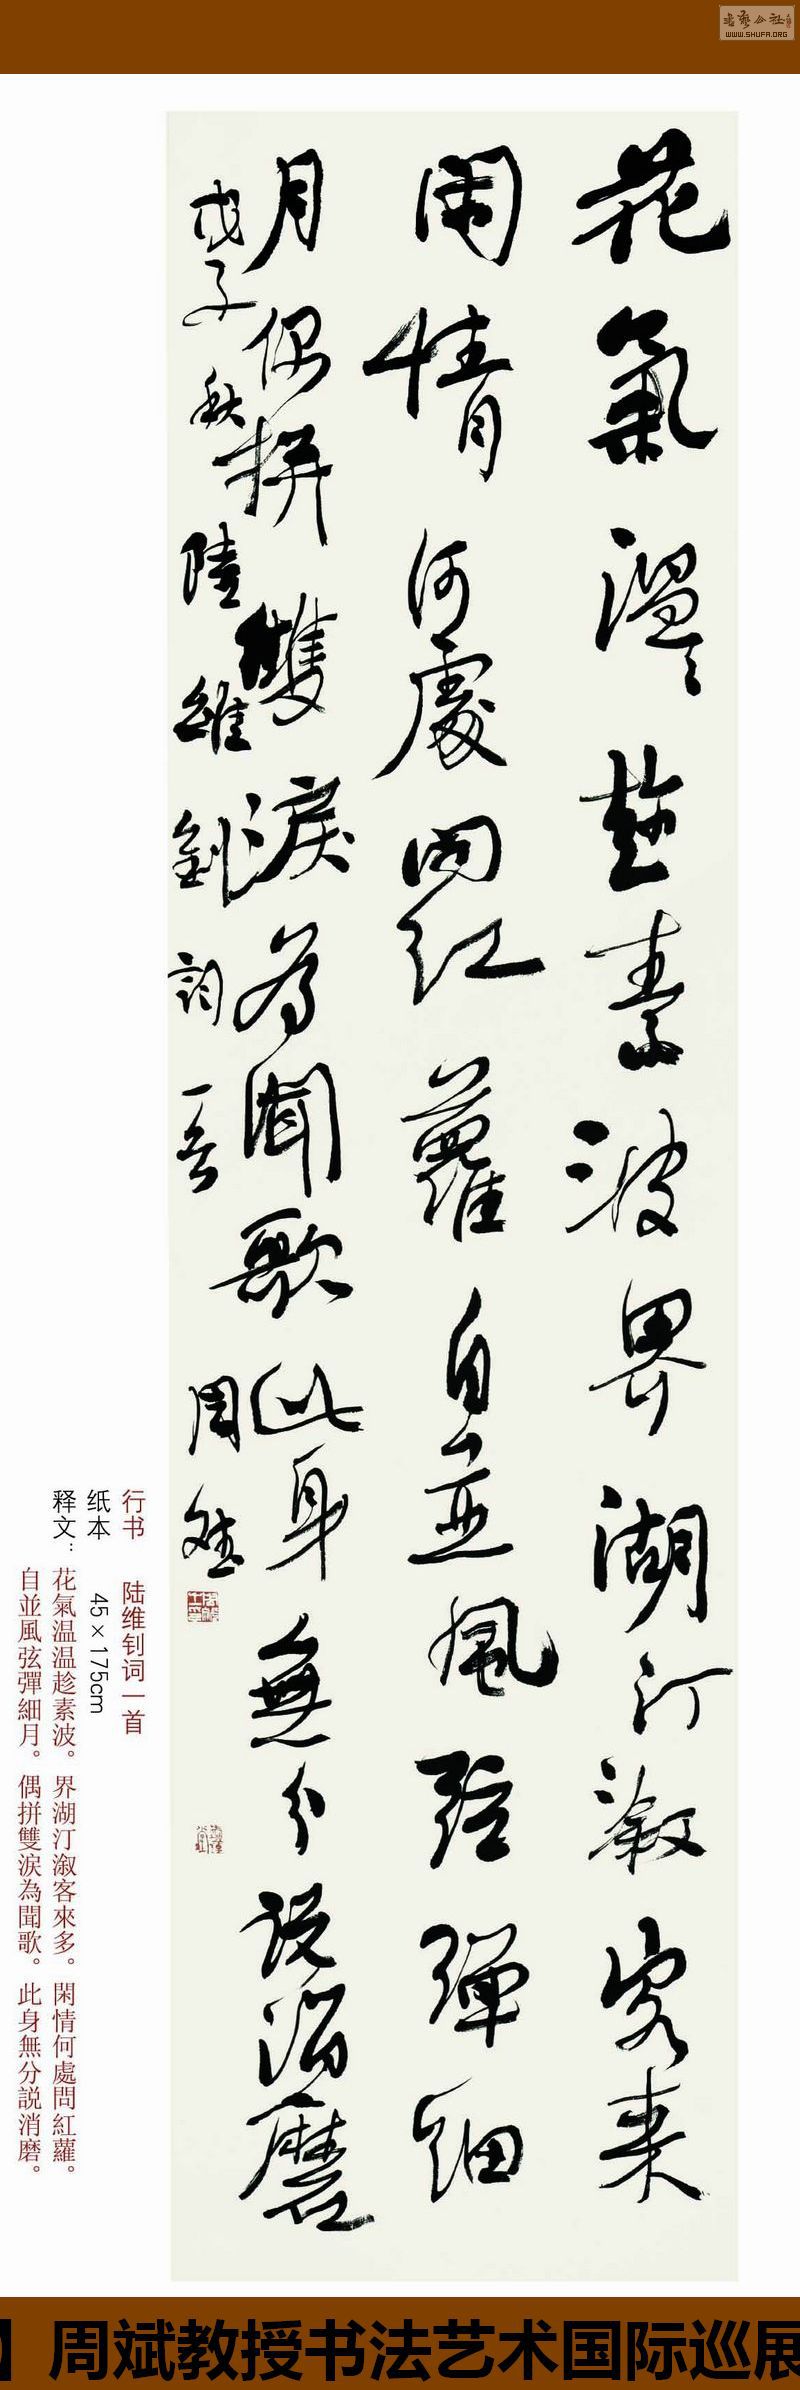 書藝公社
WWW.SHUFA.ORG
花氣溫〻趁素波界湖汀漵客来
閑情何處问红蘿自並風弦彈細
月偶拼雙淚為聞歌此身無分説消磨
戊子秋陸維釗詞一首周斌
行书 陆维钊词一首
纸本 45×175cm
释文：花氣温温趁素波。界湖汀溆客來多。閑情何處問紅蘿。
自並風弦彈細月。偶拼雙淚為聞歌。此身無分説消磨。
】周斌教授书法艺术国际巡展